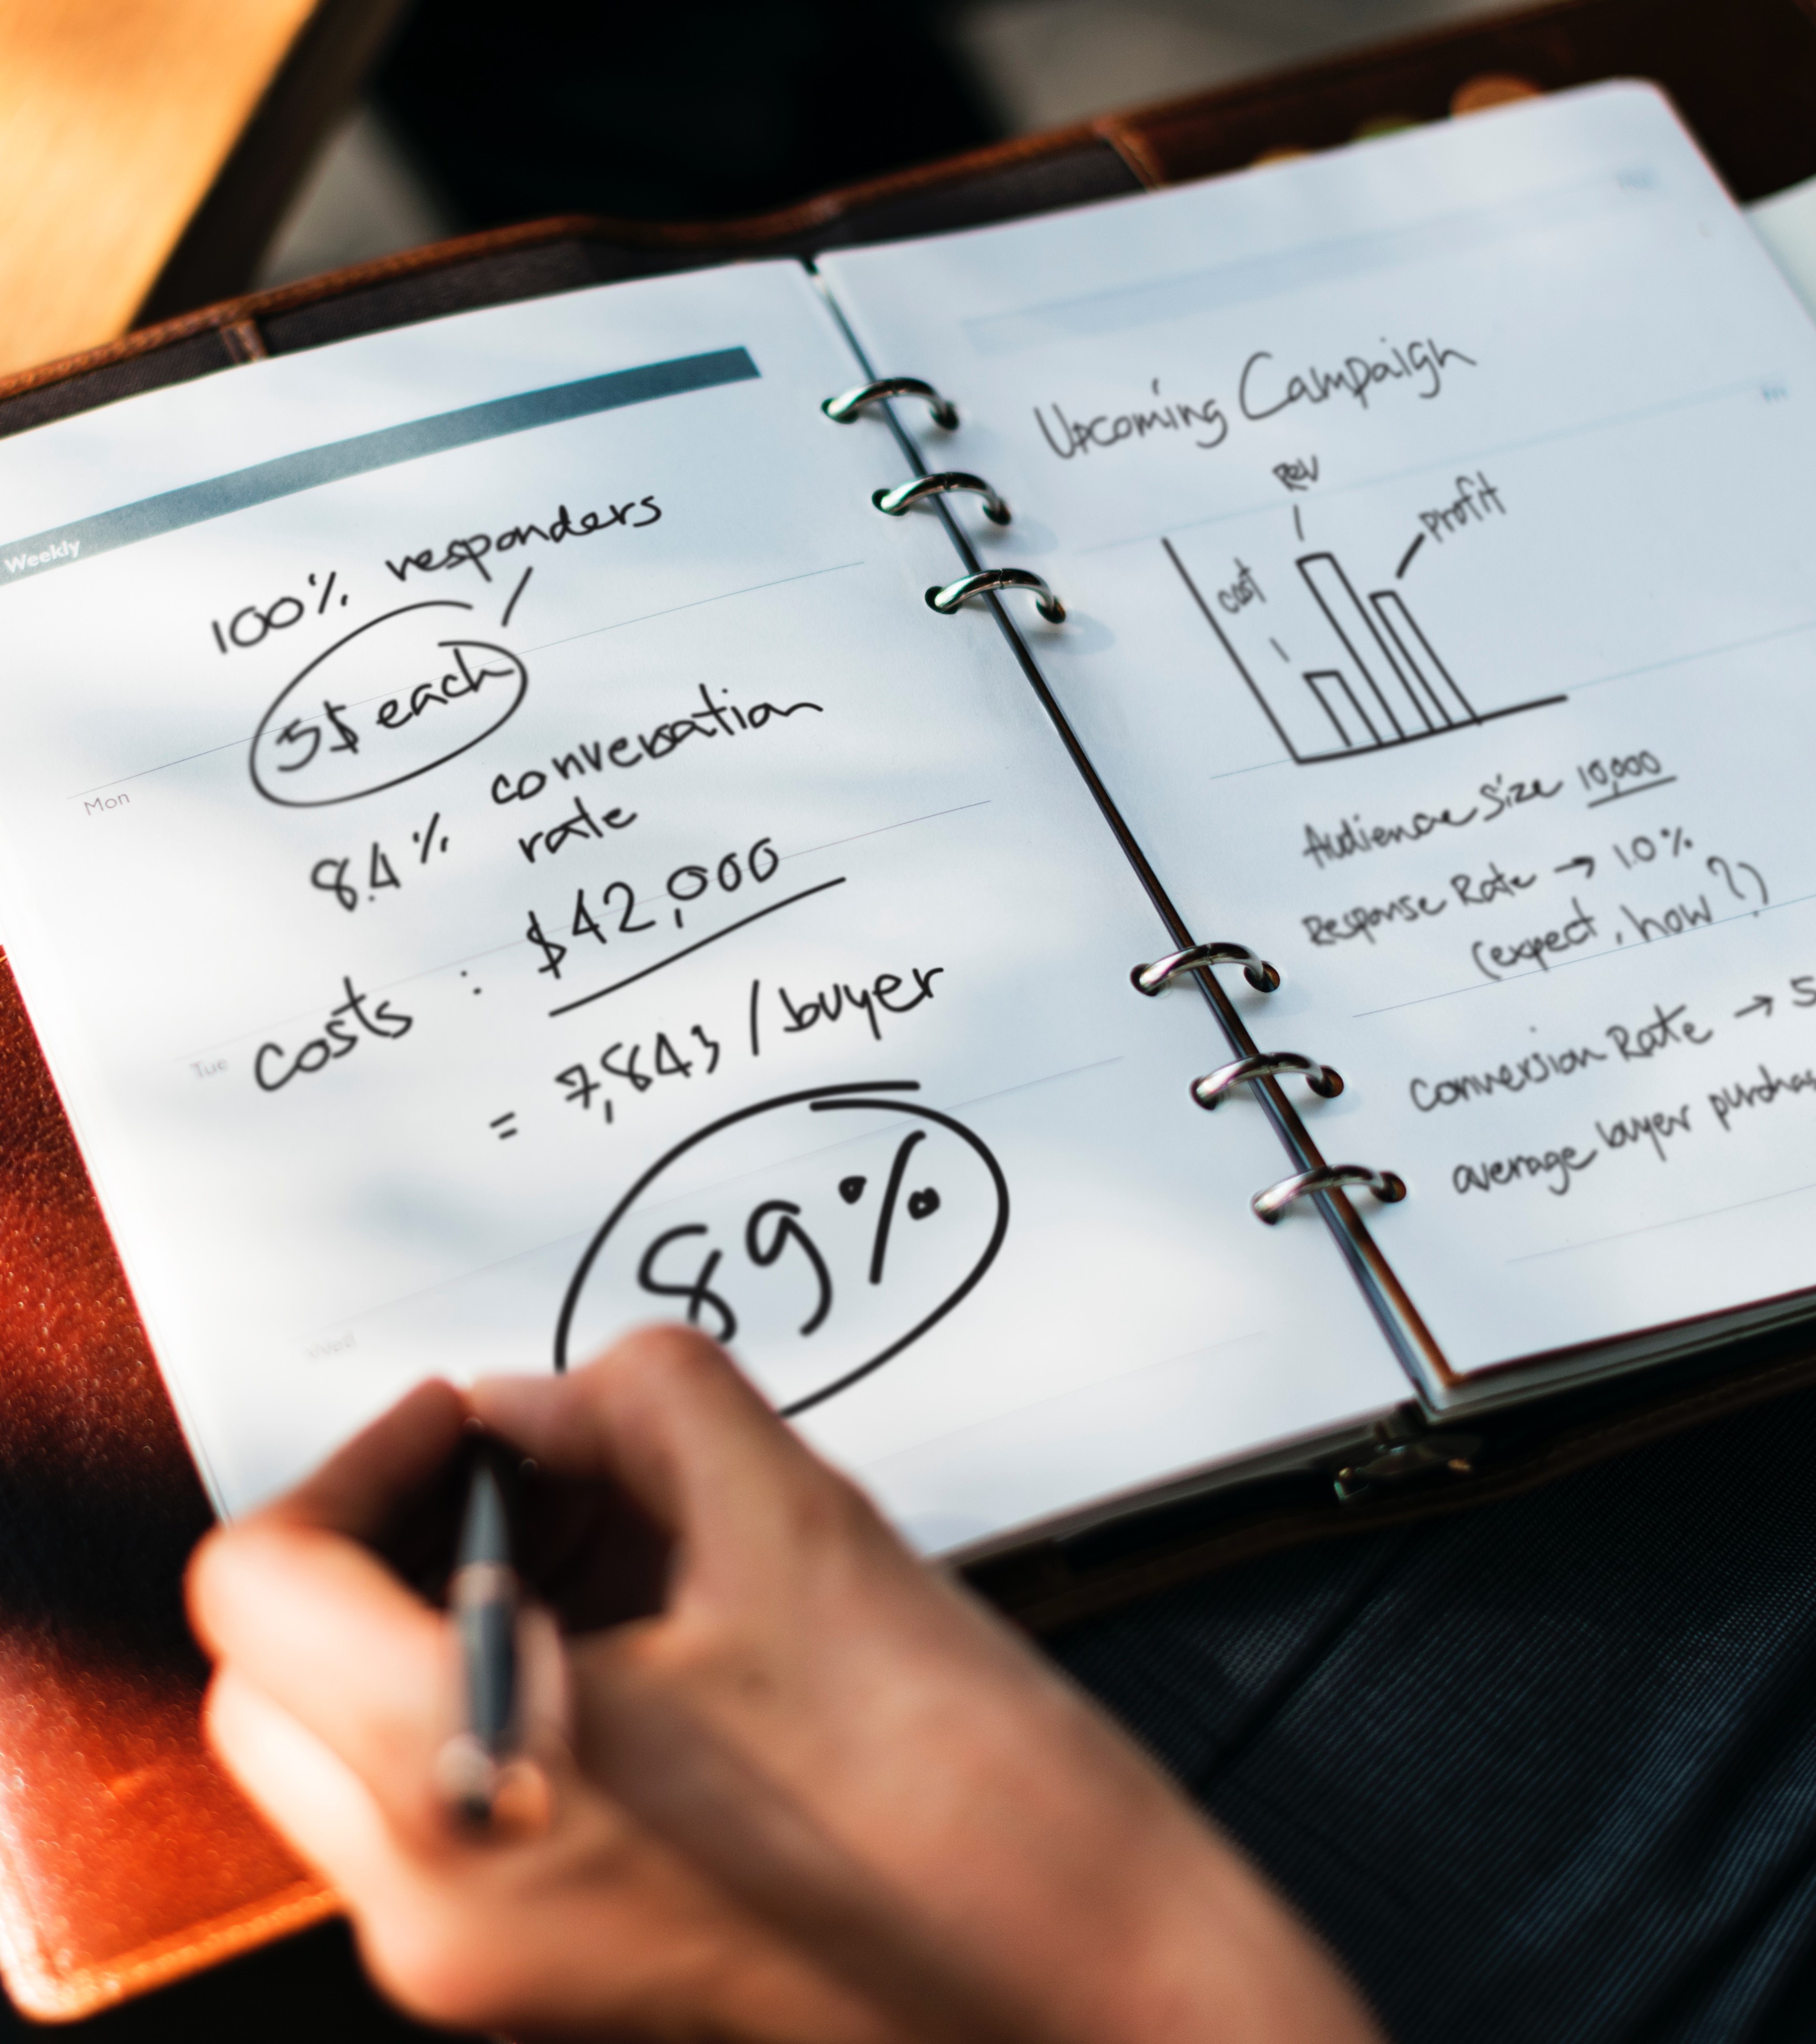 Weekly
100% responders
5$ each
Mon
8.4% conversation
rate
Tue
costs : $42,000
= 7,843 / buyer
Wed
89%
Upcoming Campaign
Rev
Profit
cost
Audience Size 10,000
Response Rate → 1.0%
(expect, how?)
Conversion Rate → 5
average buyer purchas
Fri